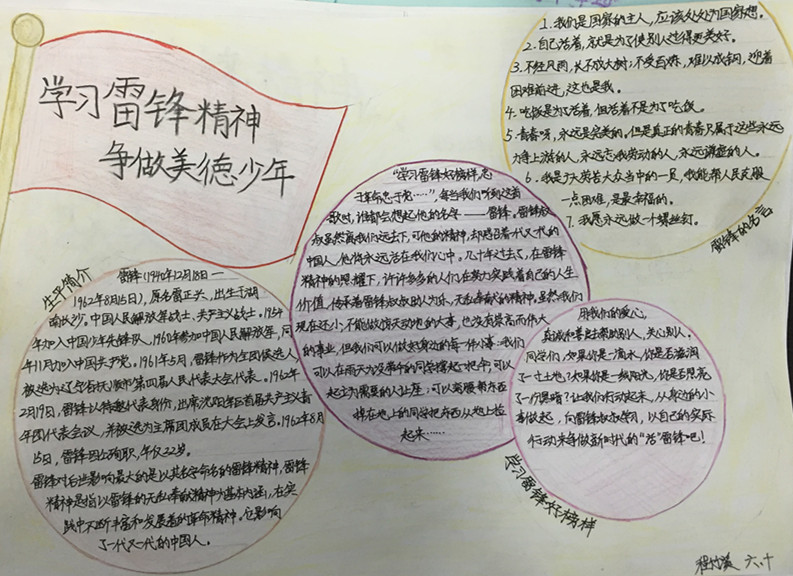 学习雷锋精神
争做美德少年
生平简介
雷锋(1940年12月18日——
1962年8月15日),原名雷正兴,出生于湖
南长沙,中国人民解放军战士、共产主义战士。1954
年加入中国少年先锋队,1960年参加中国人民解放军,同
年11月加入中国共产党。1961年5月,雷锋作为生团候选人,
被选为辽宁省抚顺市第四届人民代表大会代表。1962年
2月19日,雷锋以特邀代表身份,出席沈阳军区首届共产主义青
年团代表会议,并被选为主席团成员在大会上发言。1962年8月
15日,雷锋因公殉职,年仅22岁。
雷锋对后世影响最大的是以其名字命名的雷锋精神,雷锋
精神是指以雷锋的无私奉献精神为基本内涵,在实
践中不断丰富和发展着的革命精神。它影响
了一代又一代的中国人。
“学习雷锋好榜样,忠
于革命忠于党……”,每当我们听到这首
歌时,谁都会想起他的名字——雷锋。雷锋叔
叔虽然离我们远去了,可他的精神,却感召着一代又一代的
中国人,他将永远活在我们心中。几十年过去了,在雷锋
精神的照耀下,许许多多的人们在努力实践着自己的人生
价值,传承着雷锋叔叔助人为乐、无私奉献的精神。虽然我们
现在还小,不能做惊天动地的大事,也没有最高而伟大
的事业,但我们可以做起身边的每一件小事:我们
可以在雨天为没带伞的同学撑起一把伞,可以
起立为需要的人让座;可以弯腰帮东西
掉在地上的同学把东西从地上捡
起来……
1.我们是国家的主人,应该处处为国家想。
2.自己活着,就是为了使别人过得更美好。
3.不经风雨,长不成大树;不受百炼,难以成钢,迎着
困难前进,这也是我。
4.吃饭是为了活着,但活着不是为了吃饭。
5.青春呀,永远是完美的。但是真正的青春只属于这些永远
力争上游的人,永远忘我劳动的人,永远谦虚的人。
6.我是个大劳苦大众当中的一员,我能帮人民克服
一点困难,是最幸福的。
7.我愿永远做一个螺丝钉。
雷锋的名言
用我们的爱心,
真诚和善良来帮助别人,关心别人。
同学们,如果你是一滴水,你是否滋润
了一寸土地?如果你是一线阳光,你是否照亮
了一分黑暗?让我们行动起来,从身边的小
事做起,向雷锋叔叔学习,以自己的实际
行动来争做新时代的“活”雷锋吧!
学习雷锋好榜样
六.十